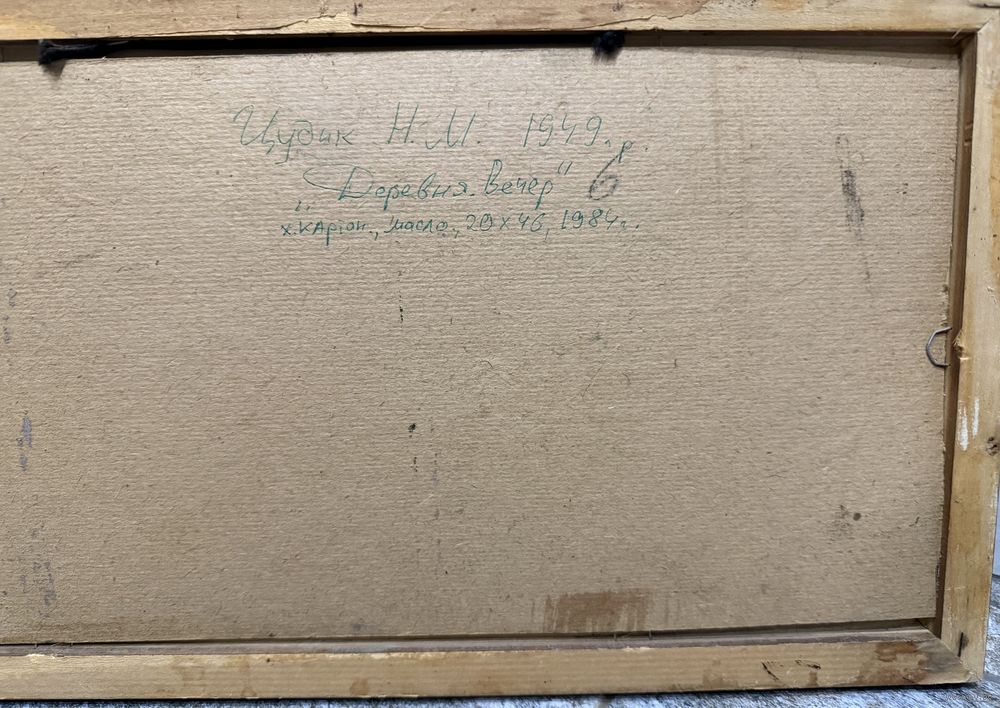 Цудик Н.М. 1949г.р.
„Деревня. Вечер" 6
х.картон., масло., 20х46, 1984г.